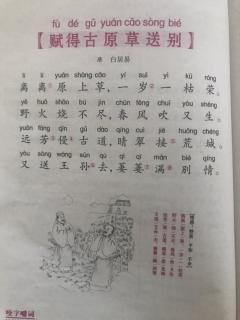 fù dé gǔ yuán cǎo sòng bié
【赋得古原草送别】
唐 白居易
lí lí yuán shàng cǎo yí suì yì kū róng
离离原上草，一岁一枯荣。
yě huǒ shāo bú jìn chūn fēng chuī yòu shēng
野火烧不尽，春风吹又生。
yuǎn fāng qīn gǔ dào qíng cuì jiē huāng chéng
远芳侵古道，晴翠接荒城。
yòu sòng wáng sūn qù qī qī mǎn bié qíng
又送王孙去，萋萋满别情。
咬字嚼词